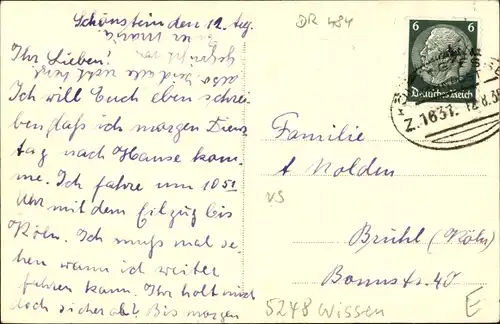 Schönstein den 12. Aug.
Ihr Lieben!
also seid alle recht herz
Ich will Euch eben schrei-
ben daß ich morgen Diens-
tag nach Hause kom-
me. Ich fahre um 10 51
Uhr mit dem Eilzug bis
Köln. Ich muß mal se-
hen wann ich weiter
fahren kann. Ihr holt mich
doch sicher ab? Bis morgen
DR 484
6 6
Deutsches Reich
Z. 1631. 12.8.
Familie
A Nolden
VS
Brühl (Köln)
Bonnstr. 40
5248 Wissen
E